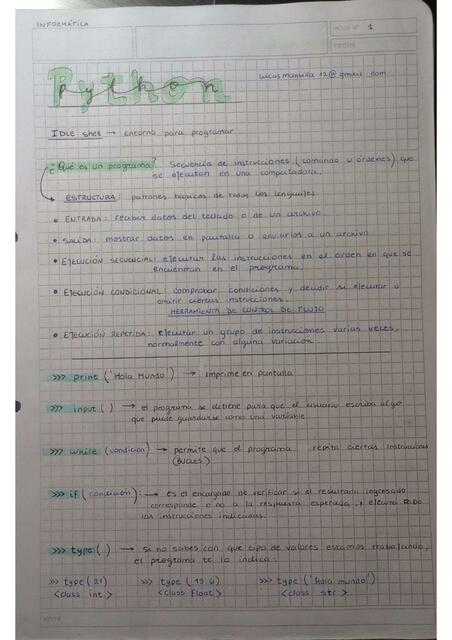 INFORMÁTICA
HOJA Nº 1
FECHA
Python
IDLE shell → entorno para programar
¿Qué es un programa? Secuencia de instrucciones (comando u órdenes) que
se ejecutan en una computadora.
ESTRUCTURA: patrones básicos de todos los lenguajes.
• ENTRADA: recibir datos del teclado o de un archivo.
• SALIDA: mostrar datos en pantalla o enviarlos a un archivo
• EJECUCIÓN SECUENCIAL: ejecutar las instrucciones en el orden en que se
encuentran en el programa.
• EJECUCIÓN CONDICIONAL: comprobar condiciones y decidir si ejecutar u
omitir ciertas instrucciones.
HERRAMIENTA DE CONTROL DE FLUJO
• EJECUCIÓN REPETIDA: ejecutar un grupo de instrucciones varias veces,
normalmente con alguna variación.
>>> print ('Hola Mundo') → imprime en pantalla
>>> input ( ) → el programa se detiene para que el usuario escriba algo
que puede guardarse como una variable
>>> while (condicion) → permite que el programa repita ciertas instrucciones
(BUCLES)
>>> if (condición): → es el encargado de verificar si el resultado ingresado
corresponde o no a la respuesta esperada, y ejecuta
las instrucciones indicadas.
>>> type ( ) → si no sabes con que tipo de valores estamos trabajando,
el programa te lo indica:
>>> type (21) >>> type (19.6) >>> type ('Hola mundo')
<class int> <class float> <class str>
NOTA